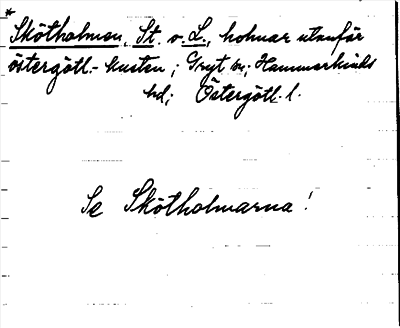 *
Skötholmen, St. o. L., holmar utanför
östergötl.-kusten; Gryt sn; Hammarkinds
hd; Östergötl. l.
Se Skötholmarna!